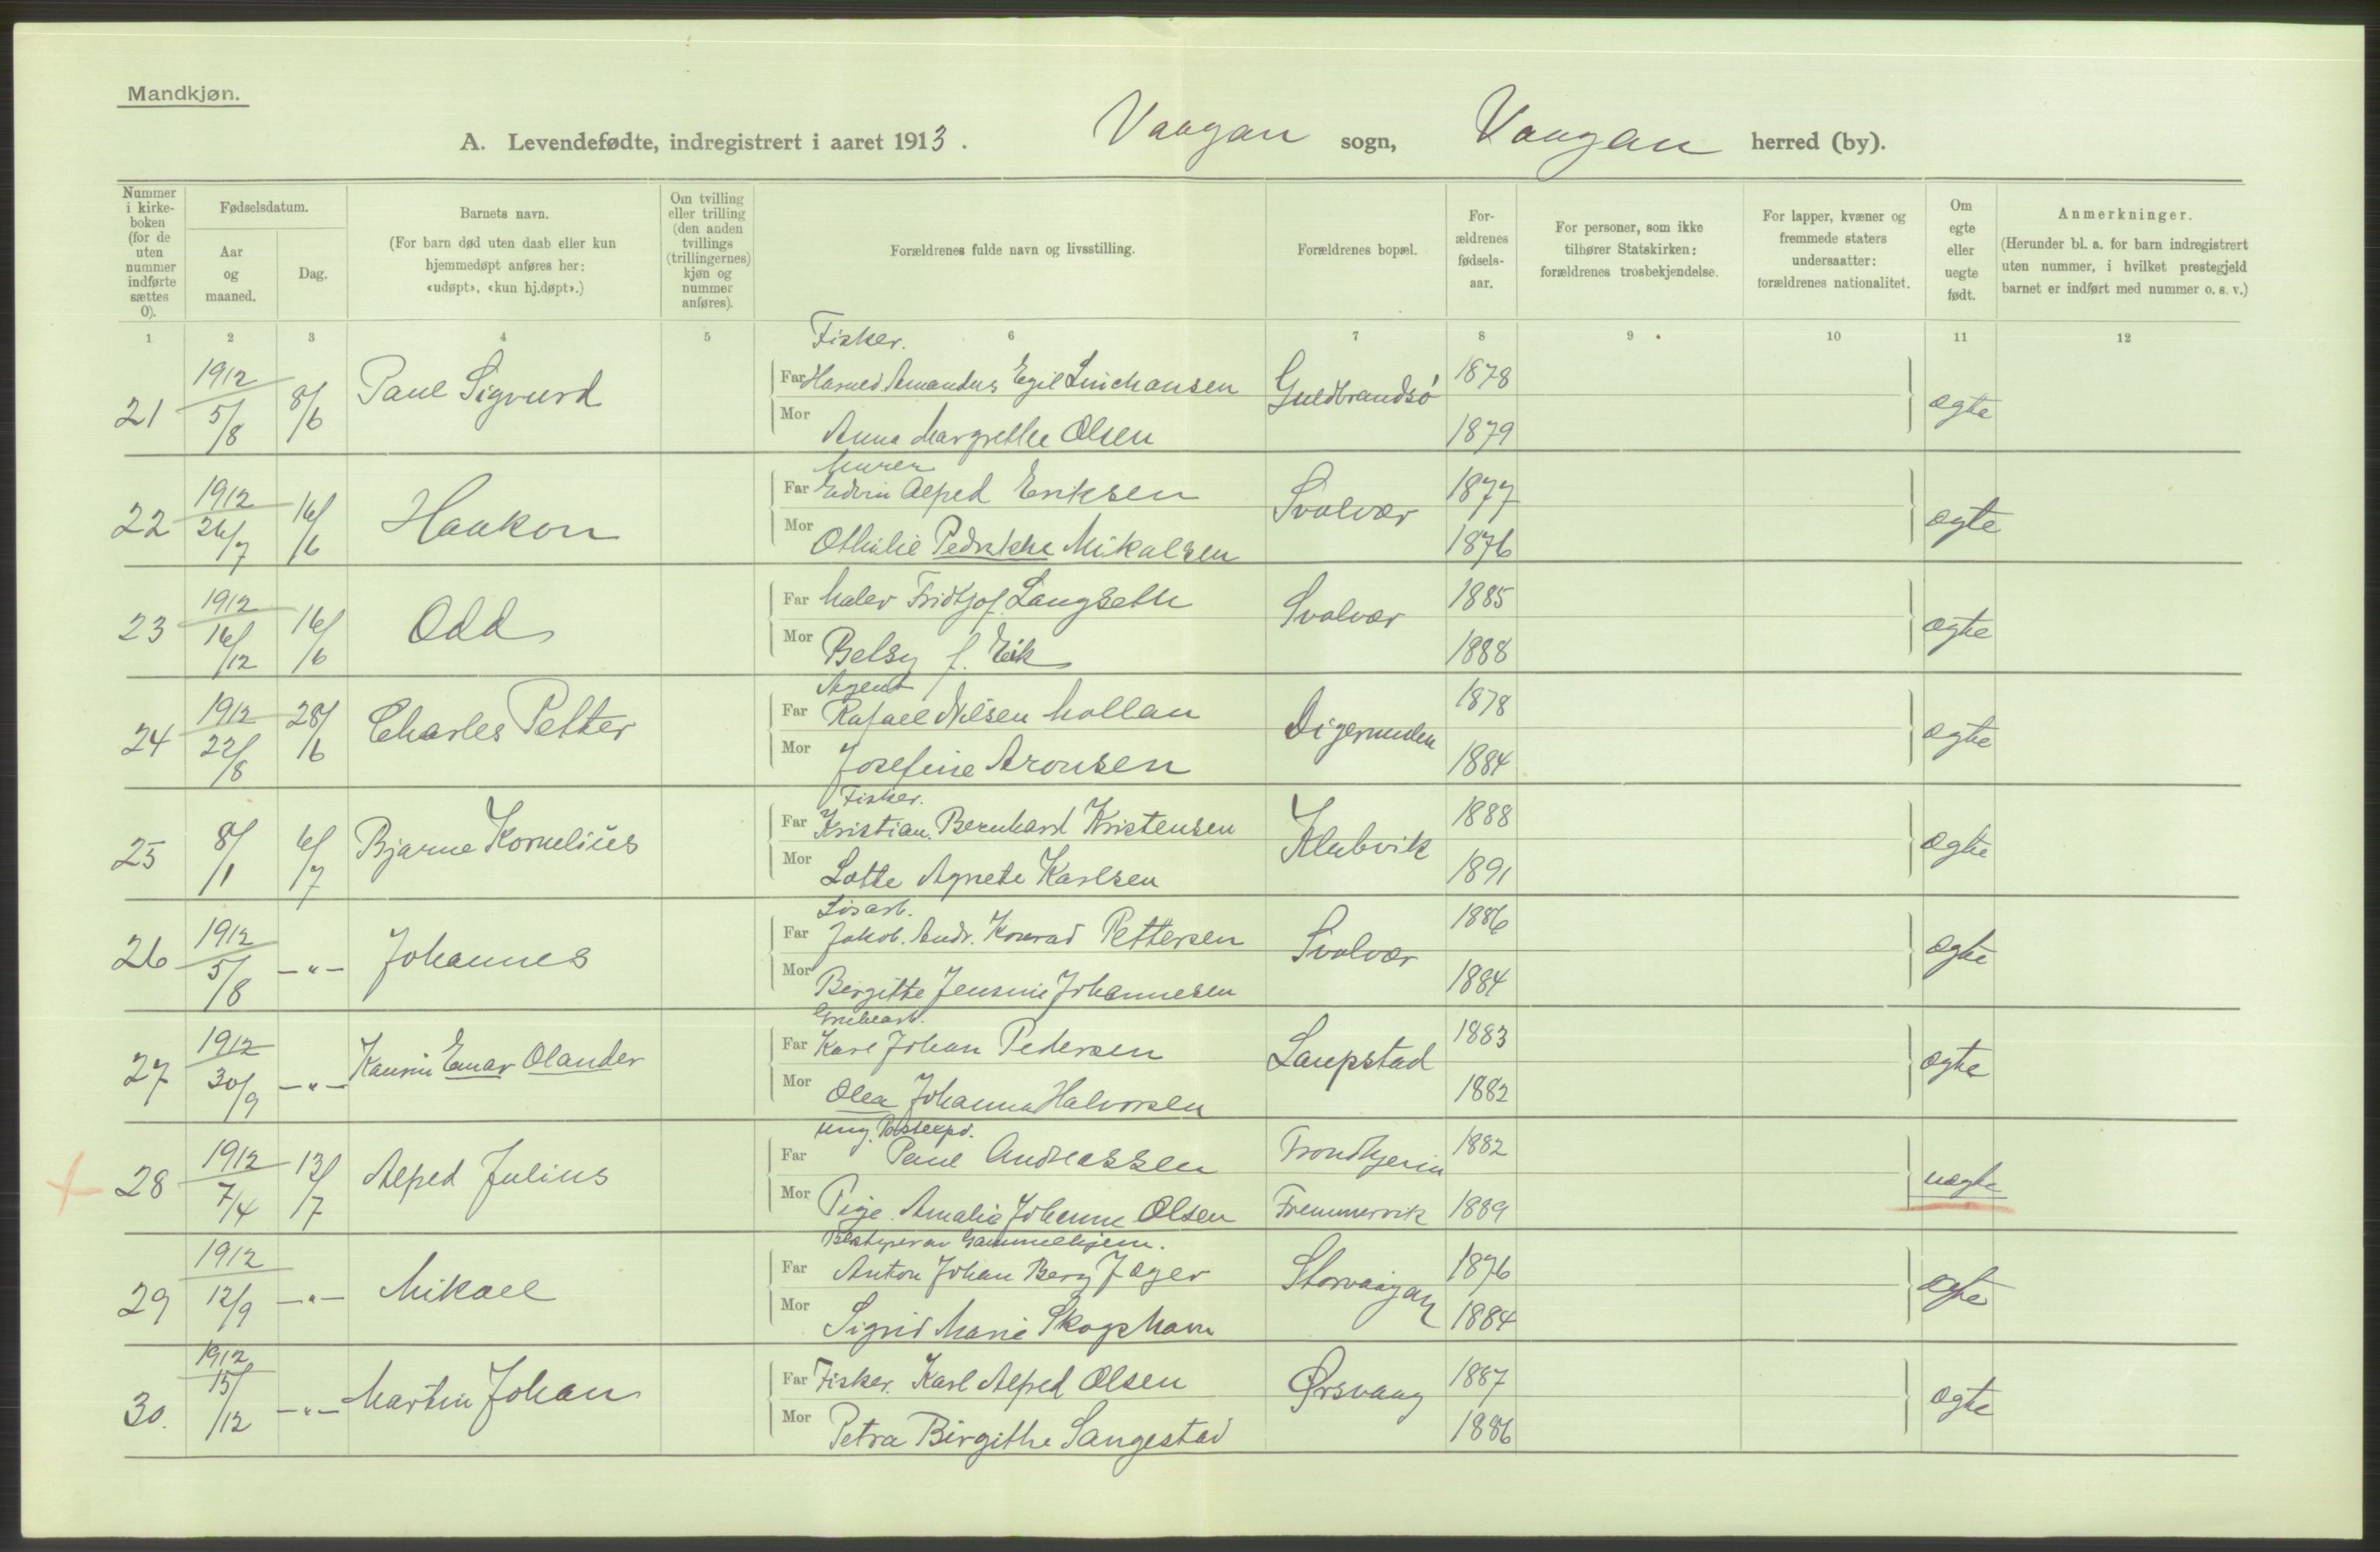 Mandkjøn.
A. Levendefødte, indregistrert i aaret 1913. Vaagan sogn, Vaagan herred (by).
Nummer i kirke-boken (for de uten nummer indførte sættes 0).
Fødselsdatum.
Aar og maaned.
Dag.
Barnets navn.
(For barn død uten daab eller kun hjemmedøpt anføres her: «udøpt», «kun hj.døpt».)
Om tvilling eller trilling (den anden tvillings (trillingernes) kjøn og nummer anføres).
Forældrenes fulde navn og livsstilling.
Forældrenes bopæl.
For-ældrenes fødsels-aar.
For personer, som ikke tilhører Statskirken: forældrenes trosbekjendelse.
For lapper, kvæner og fremmede staters undersaatter: forældrenes nationalitet.
Om egte eller uegte født.
Anmerkninger.
(Herunder bl. a. for barn indregistrert uten nummer, i hvilket prestegjeld barnet er indført med nummer o. s. v.)
1 2 3 4 5 6 7 8 9 10 11 12
Fisker.
21 1912 5/8 8/6 Paul Sigvurd Far Amandus Egil Guldbrandsø 1878 ægte
Mor Anna Margrethe Olsen 1879
Murer
22 1912 26/7 16/6 Haakon Far Edvin Alfred Eriksen Svolvær 1877 ægte
Mor Othilie Pedrikke Mikalsen 1876
23 1912 16/12 16/6 Odd Far Maler Fridtjof Langseth Svolvær 1885 ægte
Mor Betsy f. Eik 1888
Agent
24 1912 22/8 28/6 Charles Petter Far Rafael Nilsen Mollan Digermulen 1878 ægte
Mor Josefine Aronsen 1884
Fisker.
25 8/1 6/7 Bjarne Kornelius Far Kristian Bernhard Kristensen Klubvik 1888 ægte
Mor Lotte Agnete Karlsen 1891
Løsarb.
26 1912 5/8 —"— Johannes Far Jakob. Andr. Konrad Pettersen Svolvær 1886 ægte
Mor Birgitte Jensine Johannesen 1884
Grubearb.
27 1912 30/9 —"— Einar Olander Far Karl Johan Pedersen Laupstad 1883 ægte
Mor Olea Johanna Halvorsen 1882
ung. Postexpd.
28 1912 7/4 13/7 Alfred Julius Far Paul Andreassen Trondhjem 1882 uægte
Mor Pige Amalie Johanne Olsen Fremmervik 1889
Bestyrer av Gammelhjem.
29 1912 12/9 —"— Mikael Far Anton Johan Berg Jæger Storvaagan 1876 ægte
Mor Sigrid Marie 1884
30. 1912 15/12 —"— Martin Johan Far Fisker. Karl Alfred Olsen Ørsvaag 1887 ægte
Mor Petra Birgithe Sangestad 1886